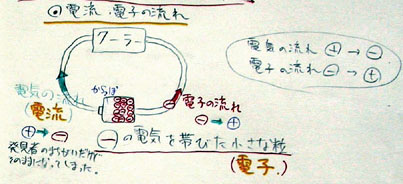 ◎電流・電子の流れ
クーラー
電気の流れ ⊕→⊖
電子の流れ ⊖→⊕
からぽ
電気の流れ
(電流)
⊕→⊖
⊖電子の流れ
⊖→⊕
発見者のまちがいだが
そのままになってしまった。
⊖の電気を帯びた小さな粒
(電子.)